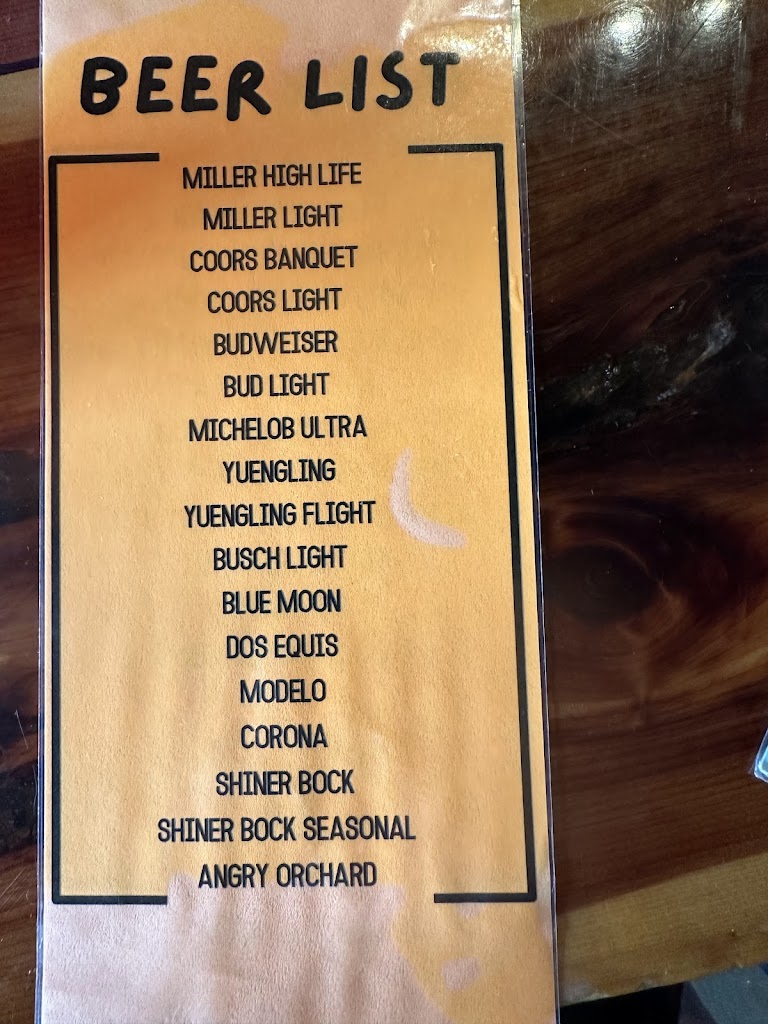 BEER LIST
MILLER HIGH LIFE
MILLER LIGHT
COORS BANQUET
COORS LIGHT
BUDWEISER
BUD LIGHT
MICHELOB ULTRA
YUENGLING
YUENGLING FLIGHT
BUSCH LIGHT
BLUE MOON
DOS EQUIS
MODELO
CORONA
SHINER BOCK
SHINER BOCK SEASONAL
ANGRY ORCHARD